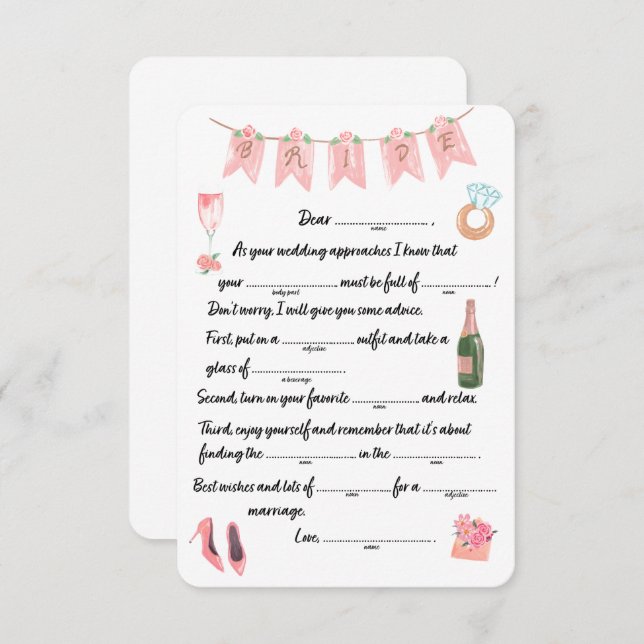 BRIDE
Dear ..................... ,
name
As your wedding approaches I know that
your ..................... must be full of ................ !
body part noun
Don't worry, I will give you some advice.
First, put on a ................. outfit and take a
adjective
glass of ..................... .
a beverage
Second, turn on your favorite ................ and relax.
noun
Third, enjoy yourself and remember that it's about
finding the ..................... in the ..................... .
noun noun
Best wishes and lots of ................. for a .................
noun adjective
marriage.
Love, ......................... .
name